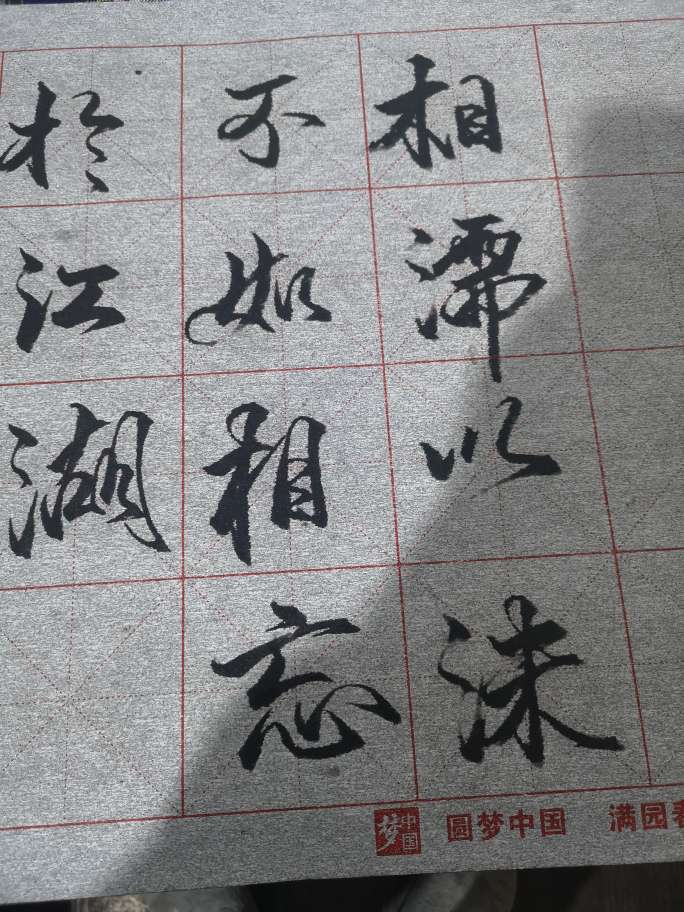 相濡以沫
不如相忘
於江湖
梦中国
圆梦中国 满园春